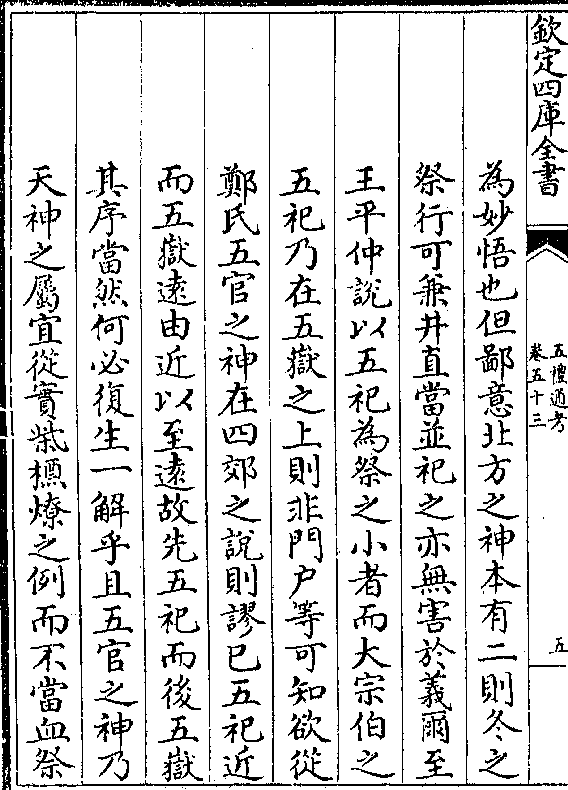 欽定四庫全書
五禮通考
卷五十三
五
為妙悟也但鄙意北方之神本有二則冬之
祭行可兼井直當並祀之亦無害於義爾至
王平仲說以五祀為祭之小者而大宗伯之
五祀乃在五嶽之上則非門户等可知欲從
鄭氏五官之神在四郊之說則謬已五祀近
而五嶽逺由近以至逺故先五祀而後五嶽
其序當然何必復生一解乎且五官之神乃
天神之屬宜從實柴槱燎之例而不當血祭